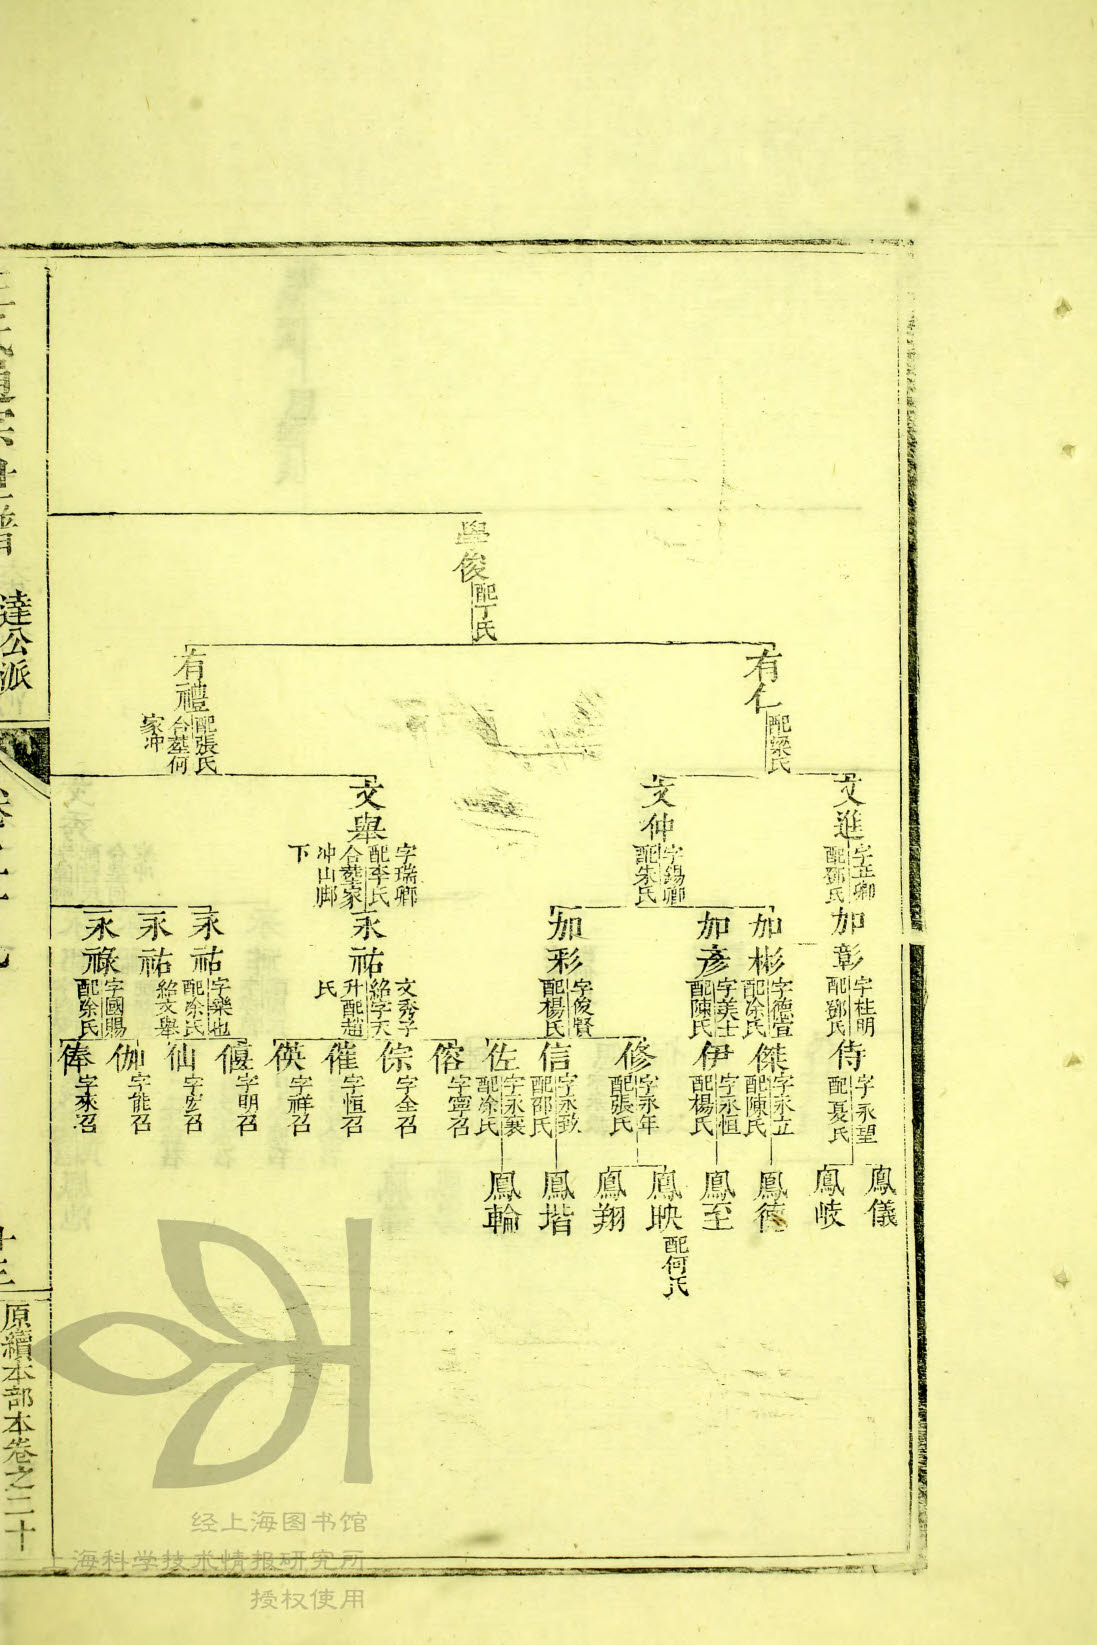 學俊
配丁氏
有仁
配梁氏
有禮
配張氏
合塟何
家冲
文進
字正卿
配鄧氏
文仲
字錫卿
配朱氏
文舉
字瑞卿
配李氏
合塟家
冲山脚
下
加彰
字桂明
配鄧氏
加彬
字德宣
配涂氏
加彥
字美士
配陳氏
加彩
字俊賢
配楊氏
永祐
文秀子
紹字天
升配趙
氏
永祐
字樂也
配涂氏
永祐
紹文舉
永祿
字國賜
配涂氏
侍
字永望
配夏氏
傑
字永立
配陳氏
伊
字永恒
配楊氏
修
字永年
配張氏
信
字永致
配邵氏
佐
字永襄
配涂氏
傛
字寧召
倧
字全召
催
字恒召
偀
字祥召
偃
字明召
仙
字宏召
伽
字能召
俸
字來召
鳳儀
鳳岐
鳳德
鳳至
鳳映
配何氏
鳳翔
鳳堦
鳳輪
王氏通宗世譜
達公派
原續本部本卷之二十
经上海图书馆
上海科学技术情报研究所
授权使用